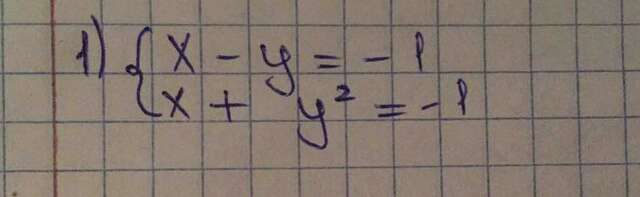 1) { x - y = -1
x + y² = -1